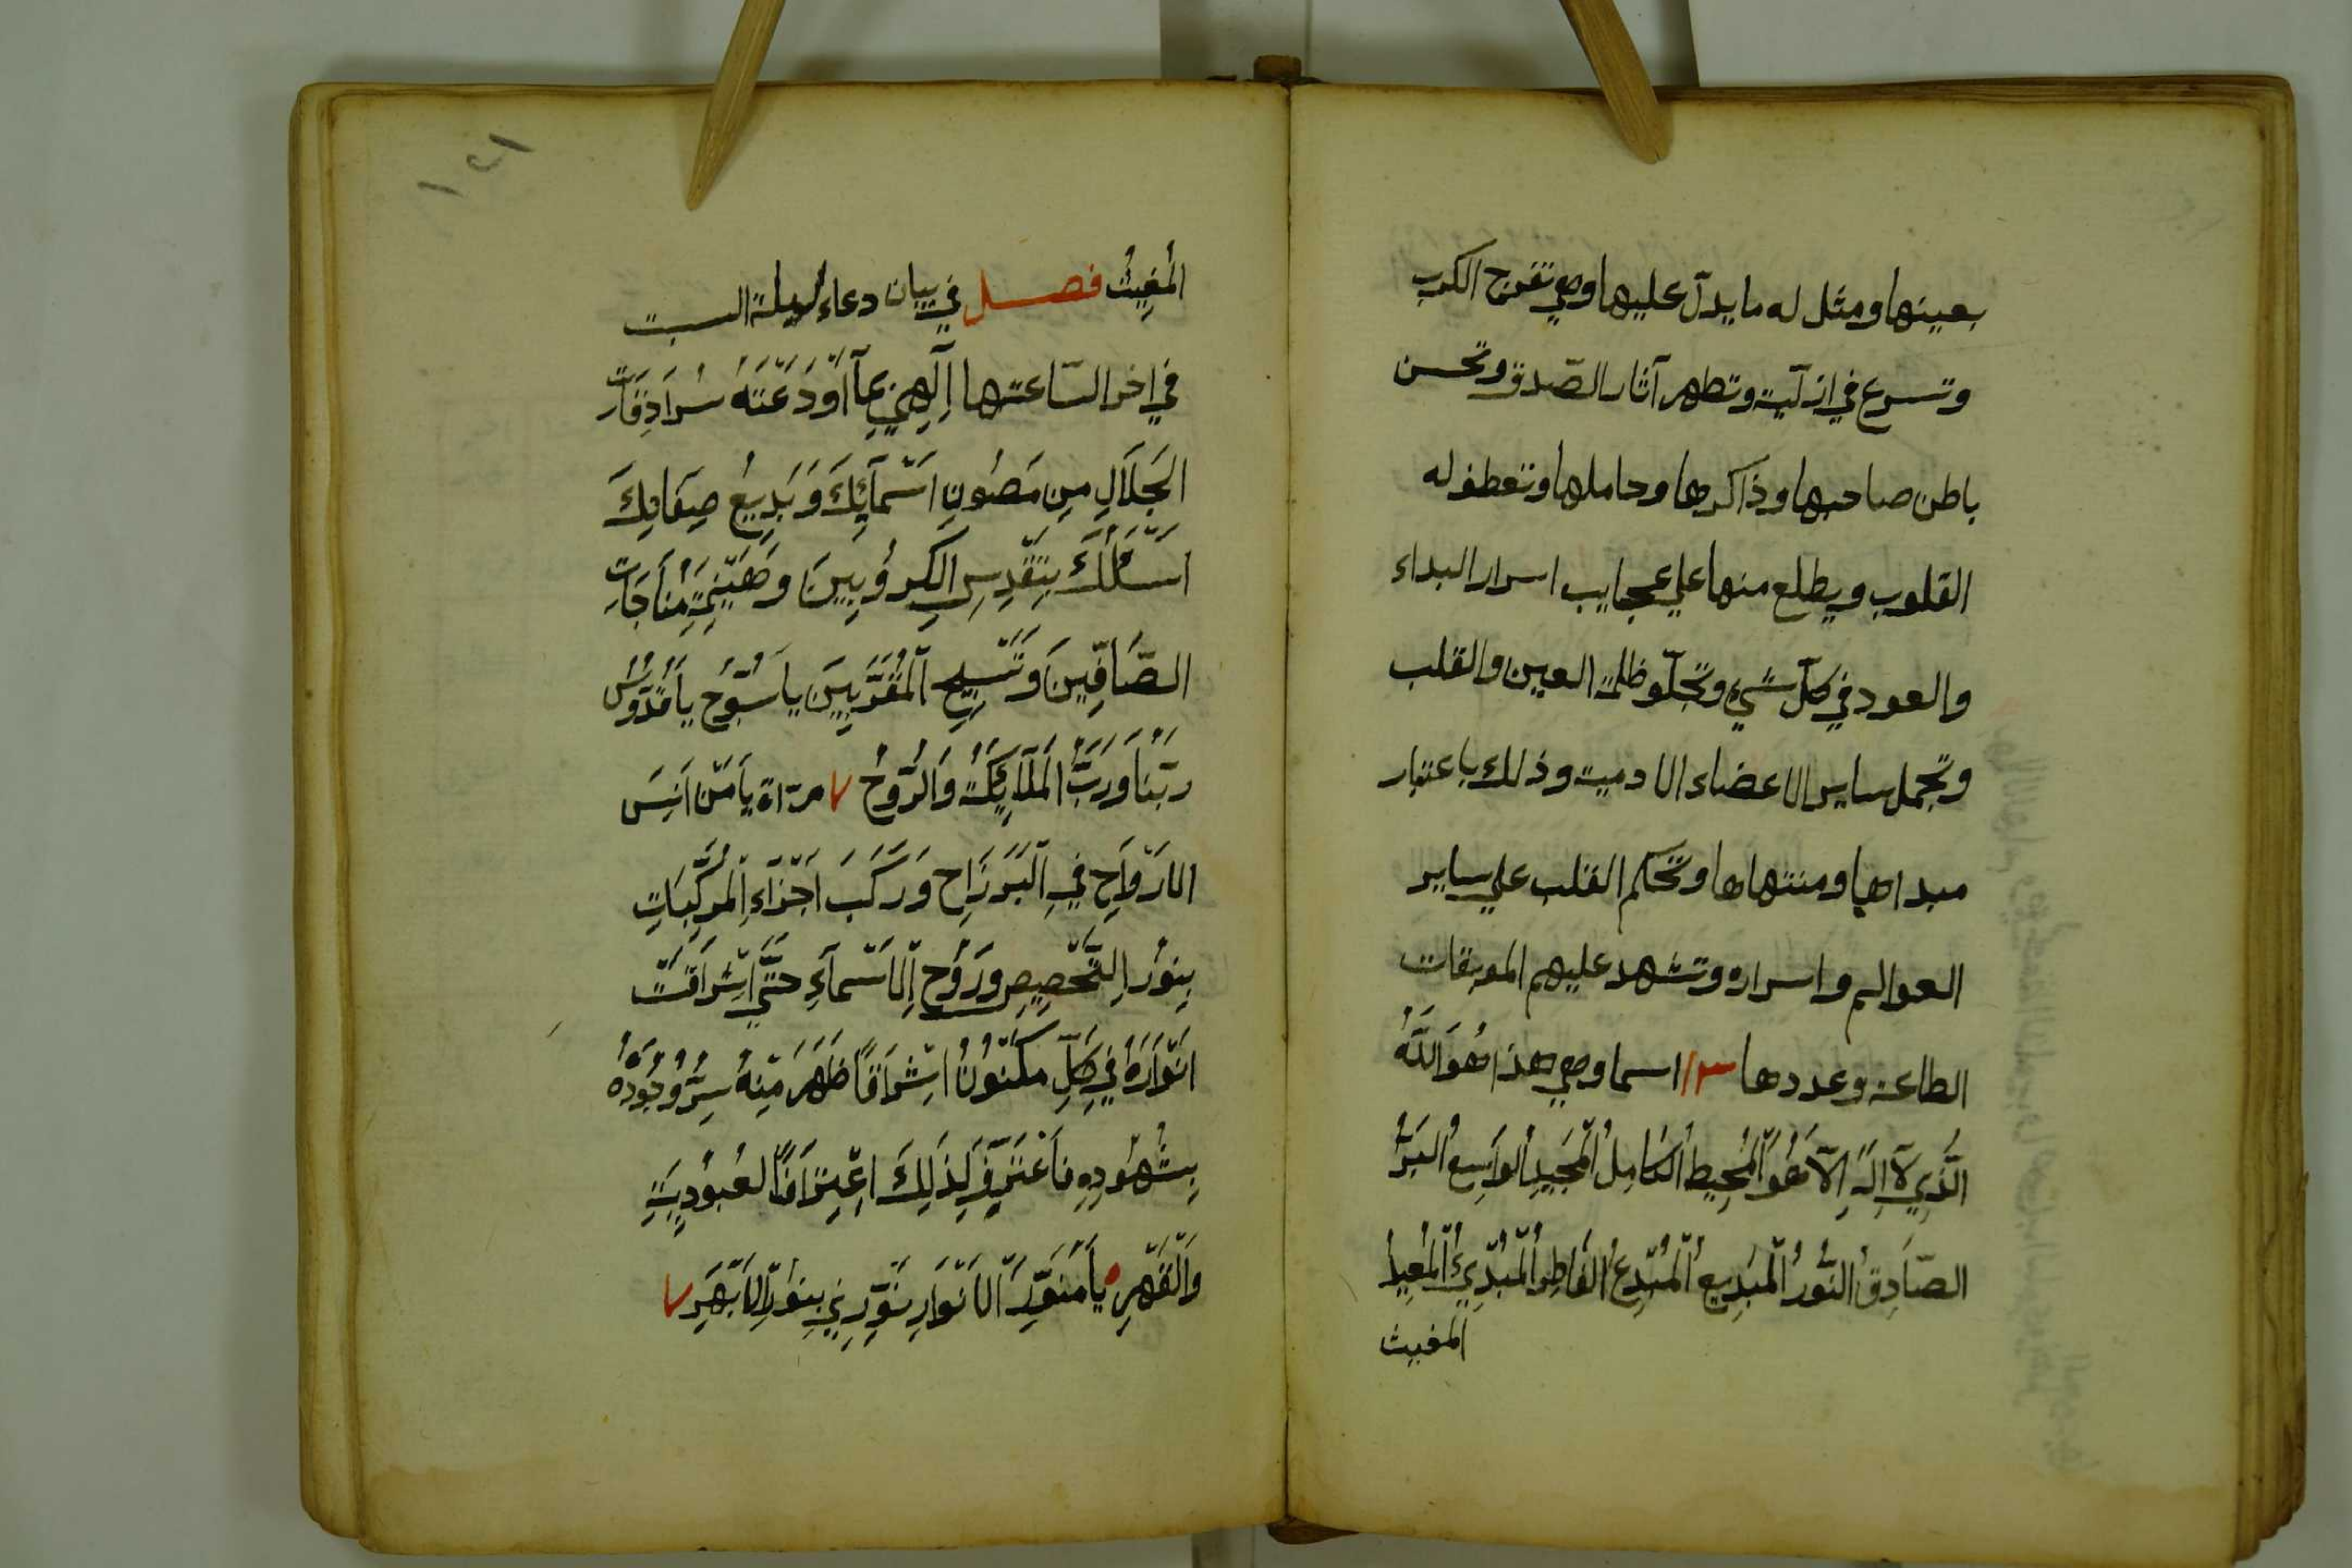 بعينها ومثل له ما يدلّ عليها وهي تفرج الكرب
وتسرع في ازليّة وتظهر آثار الصّدق وتحسن
باطن صاحبها وذاكرها وحاملها وتعطف له
القلوب ويطلع منها علي عجايب اسرار البداء
والعود في كلّ شيء وتجلّو ظلمة العين والقلب
وتجمل ساير الاعضاء الادمية وذلك باعتبار
مبداها ومنتهاها وتحكم القلب علي ساير
العوالم واسراره وتشهد عليهم الموبقات
الطاعنة وعددها اسما وهي هذا هُوَ اللّهُ
الَّذِي لَآ اِلَهَ اِلَّا هُوَ الْمُحِيطُ الْكَامِلُ الْمَجِيدُ الْوَاسِعُ الْبَرُّ
الصَّادِقُ النُّورُ الْمَبَدِيعُ الْمُبْدِعُ الْفَاطِرُ الْمُبْدِئُ الْمُعِيدُ
المغيث
١٤١
الْمُغِيثُ فصل في بيان دعاء ليلة السبت
في اخر السّاعتها اِلَهِي بِمَآ اَوْدَعْتَهُ سُرَادِقَاتِ
الْجَلَالِ مِنِ مَصُونِ اَسْمَآئِكَ وَبَدِيعُ صِفَاتِكَ
اَسْئَلُكَ بِتَقْدِسِ الْكِرُوبِينَ وَهَيْنَمَةِ مُنَاجَاتِ
الصَّافِّينَ وَتَسْبِيحِ الْمُقَرَّبِينَ يا سُبُّوحُ يا قُدُّوسُ
رَبُّنَا وَرَبُّ الْمَلَآئِكَةُ وَالرُّوحُ ٧ مرّاة يا مَنْ اَنِسَ
الْاَرْوَاحِ فِي الْبَرَزَاحِ وَرَكَّبَ اَجْزَآءِ الْمُرَكَّبَاتِ
بِنوُرِ التَّخْصِيصِ وَرَوُحِ الْاَسْمَآءِ حَتَّي اِشْرَاقَتْ
اَنْوَارَهُ فِي كُلِّ مَكْنُونُ اِشْرَاقًا ظَهَرَ مِنْهُ سِرُّ وُجُودُهُ
بِشُهُودِهِ فَاَعْتَرِفِ لِذَلِكَ اِعْتِرَافًا لعُبُودِيَةِ
وَالْقَهْرِ يا مُنَوِّرَ الْاَنْوَارِ نَوِّرْنِي بِنوُرِ الْاَبْهَرِ ٧